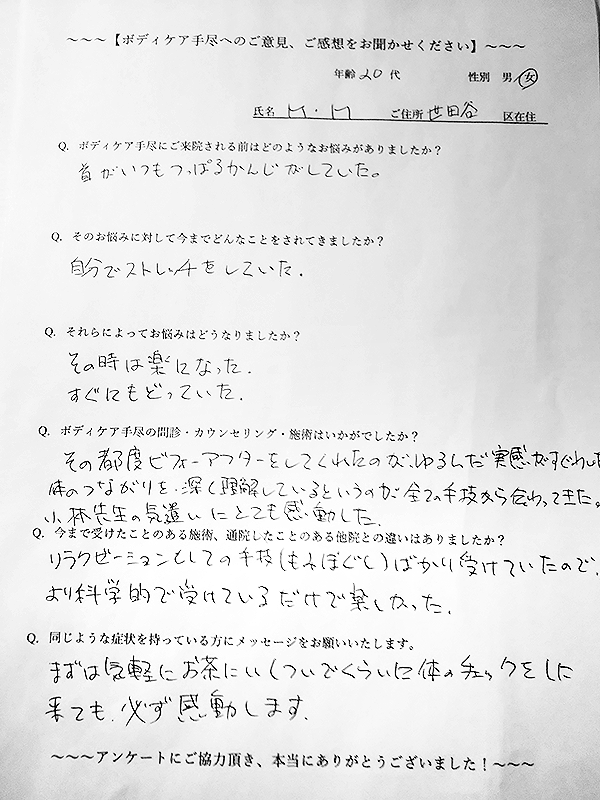 ～～～【ボディケア手尽へのご意見、ご感想をお聞かせください】～～～
年齢 20 代 性別 男 女
氏名 M・M ご住所 世田谷 区在住
Q. ボディケア手尽にご来院される前はどのようなお悩みがありましたか？
首がいつもつっぱるかんじがしていた。
Q. そのお悩みに対して今までどんなことをされてきましたか？
自分でストレッチをしていた.
Q. それらによってお悩みはどうなりましたか？
その時は楽になった.
すぐにもどっていた.
Q. ボディケア手尽の問診・カウンセリング・施術はいかがでしたか？
その都度ビフォーアフターをしてくれたのが、ゆるんだ実感がすぐわいた
体のつながりを、深く理解しているというのが全ての手技から伝わってきた。
小林先生の気遣いにとても感動した.
Q. 今まで受けたことのある施術、通院したことのある他院との違いはありましたか？
リラクゼーションとしての手技(もみほぐし)ばかり受けていたので、
より科学的で受けているだけで楽しかった.
Q. 同じような症状を持っている方にメッセージをお願いいたします。
まずは気軽にお茶にいくついでくらいに体のチェックをしに
来ても、必ず感動します.
～～～アンケートにご協力頂き、本当にありがとうございました！～～～